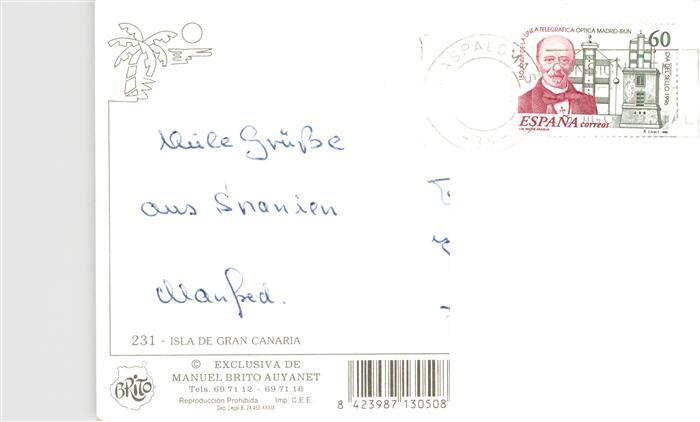 150 AÑOS DE LA LINEA TELEGRAFICA OPTICA MADRID-IRUN
60
DIA DEL SELLO 1996
ASPALOMAS
-35
ESPAÑA correos
Viele Grüße
aus Spanien
Manfred.
231 - ISLA DE GRAN CANARIA
© EXCLUSIVA DE
MANUEL BRITO AUYANET
Tels. 69 71 12 - 69 71 16
Reproducción Prohibida Imp. C.E.E.
Dep. Legal B. 24.453-XXXIX
BRITO
8 423987 130508